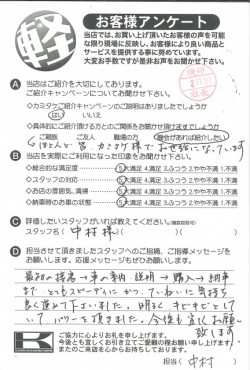 軽
お客様アンケート
当店では、お買い上げ頂いたお客様の声を可能
な限り現場に反映し、お客様により良い商品と
サービスを提供する事に努めています。
大変お手数ですが是非お声をお聞かせ下さい。
A 当店はご紹介を大切にしております。
ご紹介キャンペーンについてお聞かせ下さい
◇カミタケご紹介キャンペーンのご説明はありましたでしょうか
はい いいえ
◇具体的にご紹介頂ける方とのご関係をお聞かせ頂けますでしょうか
ご親族 ご友人 職場の方 機会があれば紹介したい
B 当店を実際にご利用になった印象をお聞かせ下さい
◇総合的な満足度 5.大満足 4.満足 3.ふつう 2.やや不満 1.不満
◇スタッフの対応 5.大満足 4.満足 3.ふつう 2.やや不満 1.不満
◇お店の雰囲気、清掃 5.大満足 4.満足 3.ふつう 2.やや不満 1.不満
◇納車時のお車の状態 5.大満足 4.満足 3.ふつう 2.やや不満 1.不満
C 評価したいスタッフがいれば教えてください。(複数回答可)
スタッフ名( 中村様 )
D 担当させて頂きましたスタッフへのご指摘、ご指導メッセージを
お願いします。応援メッセージもぜひお聞かせ下さい!
最初の接客→車の案内・説明→購入→納車
まで とてもスピーディにかつ、ていねいに気持ち
良く進めて下さいました。明るく
頂きました。今後も宜しくお願い
致します。
K
ご協力に心よりお礼を申し上げます。
今後とも宜しくお引き立てご愛顧の程お願い申し上げます。
またのご来店を心からお待ちしております。
担当( 中村 )